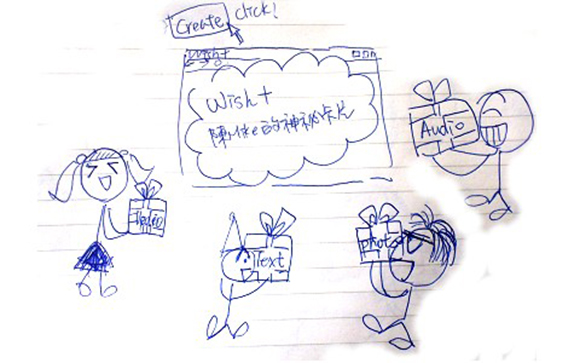 Create click!
Wish+
Wish+
陳 的神秘卡片
Audio
Video
Text
photo